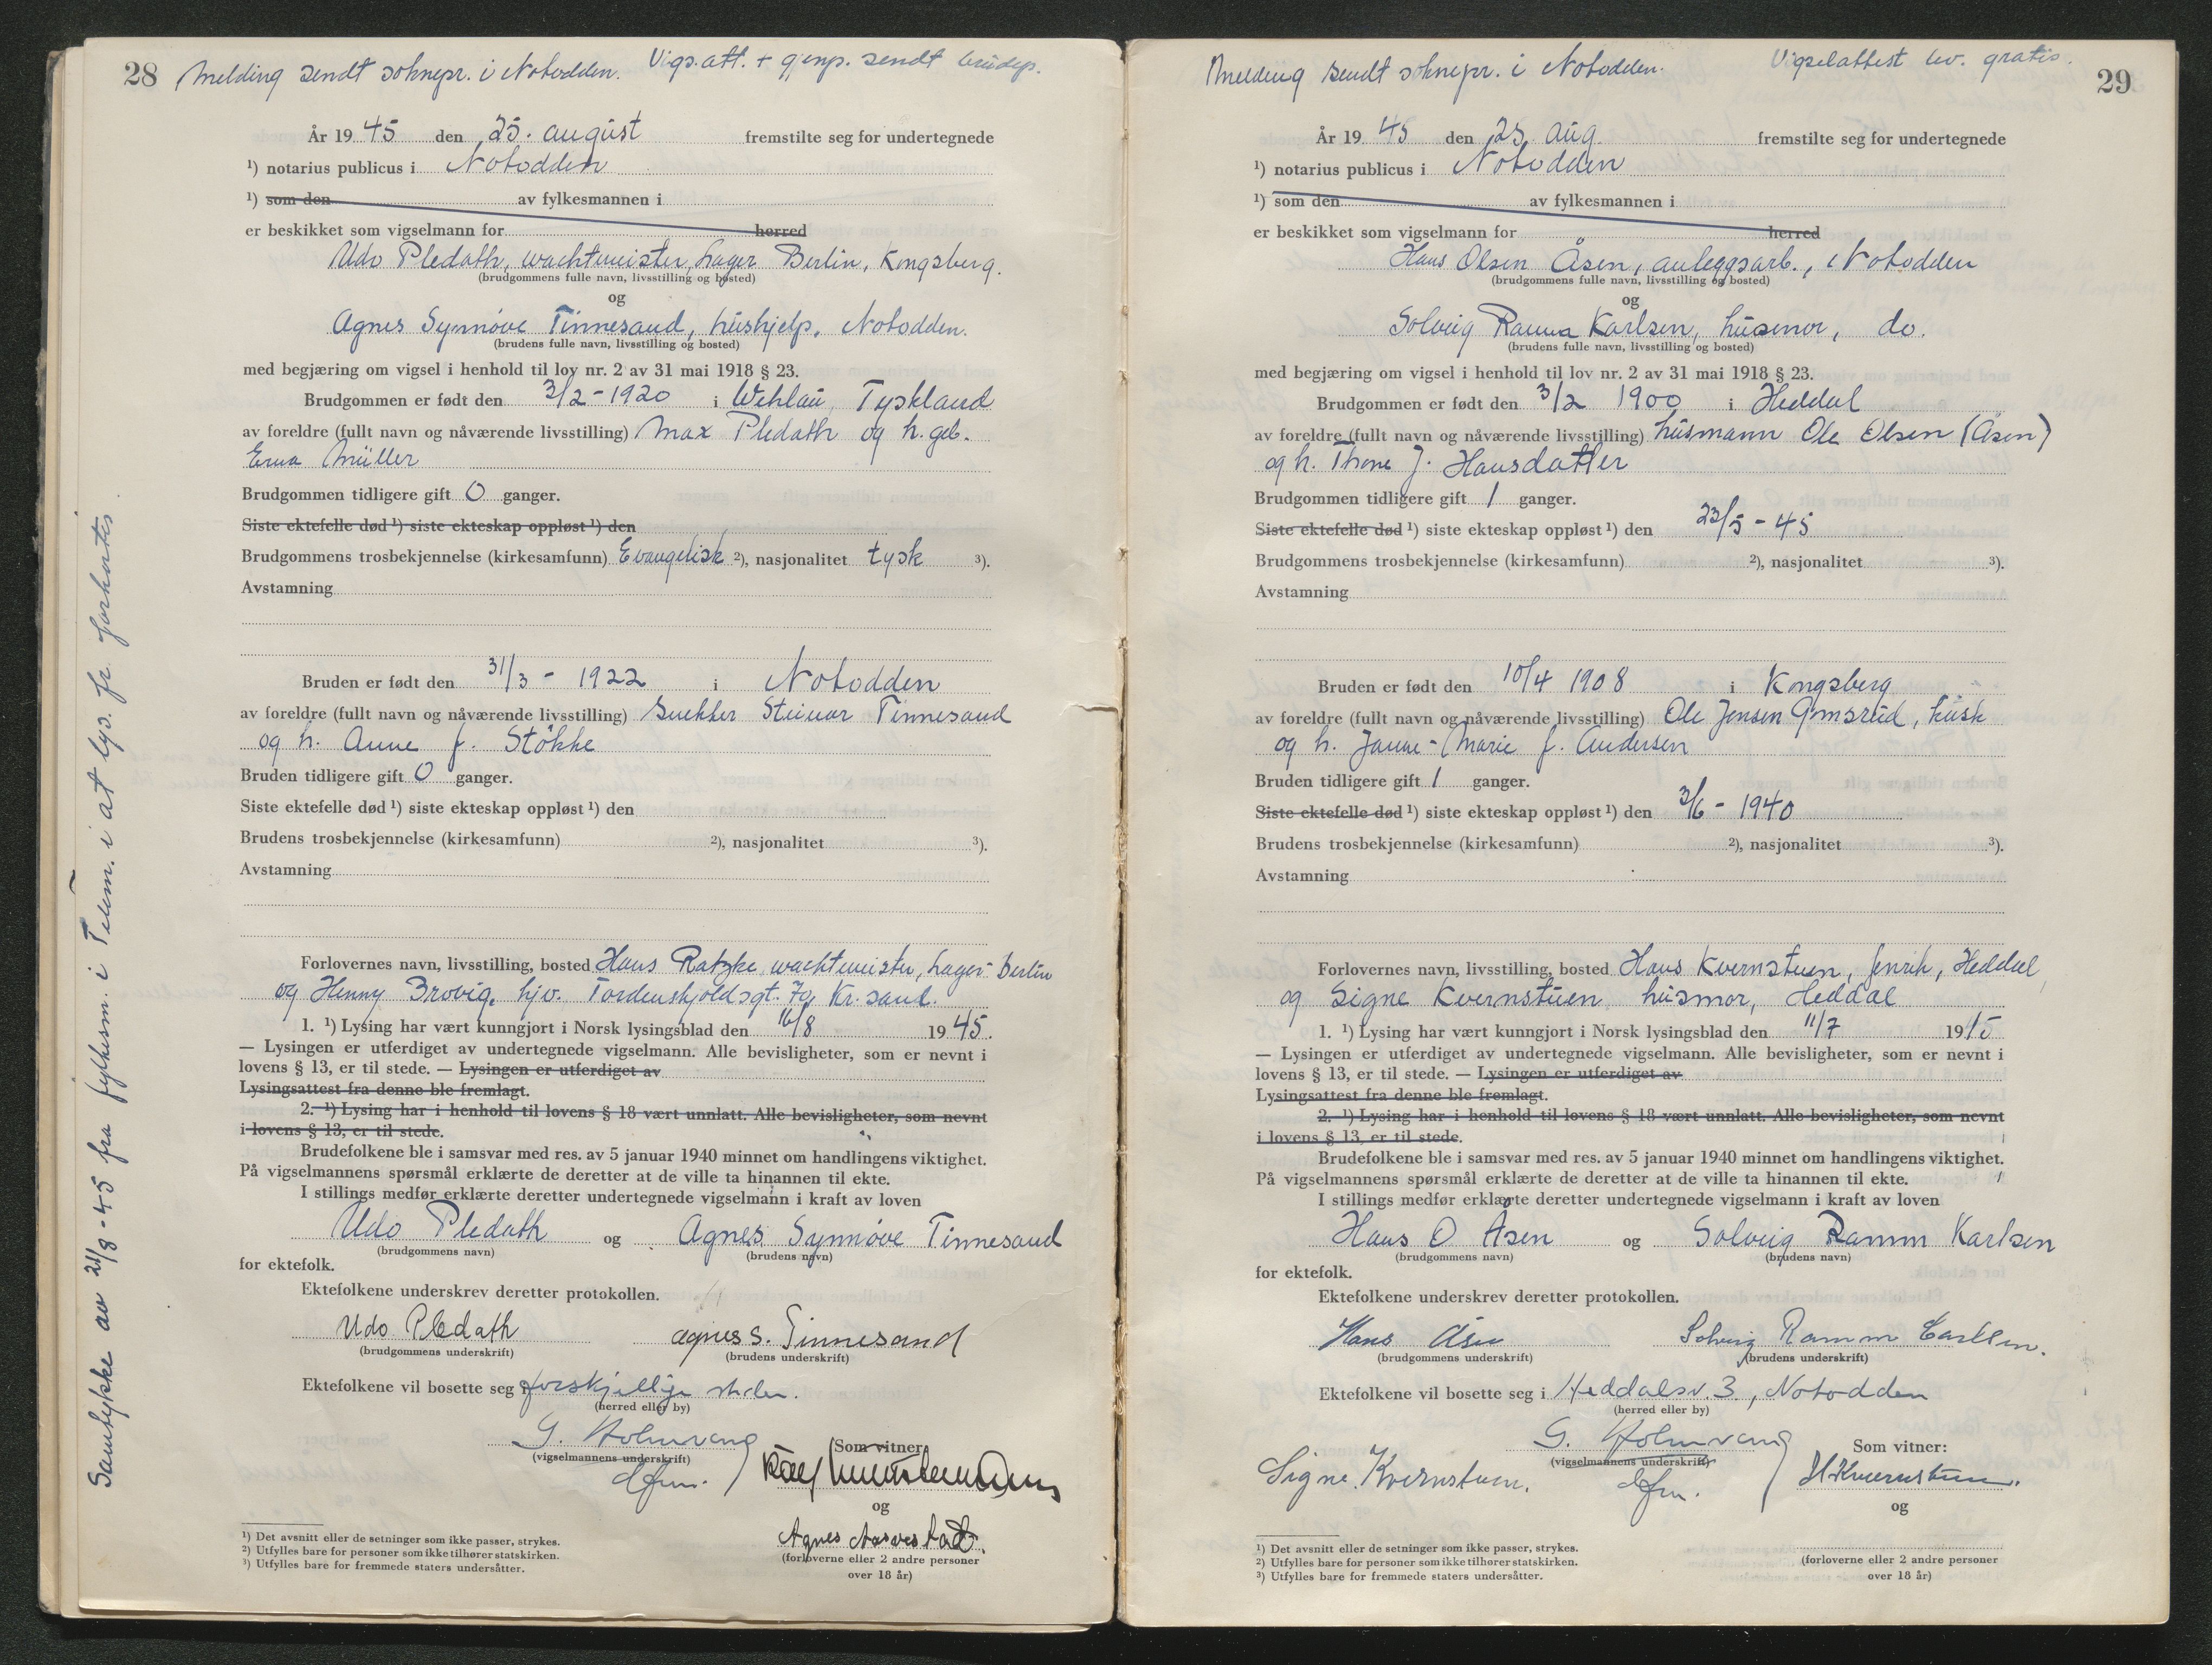 28 Melding sendt soknepr. i Notodden. Vigs.att. + gjenp. sendt brudep.
År 19 45 den 25. august fremstilte seg for undertegnede
¹) notarius publicus i Notodden
¹) som den av fylkesmannen i
er beskikket som vigselmann for herred
Udo Pledath, wachtmeister, Lager Berlin, Kongsberg.
(brudgommens fulle navn, livsstilling og bosted)
og
Agnes Synnøve Tinnesand, hushjelp, Notodden.
(brudens fulle navn, livsstilling og bosted)
med begjæring om vigsel i henhold til lov nr. 2 av 31 mai 1918 § 23.
Brudgommen er født den 3/2-1920 i Wehlau, Tyskland
av foreldre (fullt navn og nåværende livsstilling) Max Pledath og h. geb.
Erna Müller
Brudgommen tidligere gift 0 ganger.
Siste ektefelle død ¹) siste ekteskap oppløst ¹) den
Brudgommens trosbekjennelse (kirkesamfunn) Evangelisk ²), nasjonalitet tysk ³).
Avstamning
Bruden er født den 31/3 - 1922 i Notodden
av foreldre (fullt navn og nåværende livsstilling) snekker Steinar Tinnesand
og h. Anne f. Stokke
Bruden tidligere gift 0 ganger.
Siste ektefelle død ¹) siste ekteskap oppløst ¹) den
Brudens trosbekjennelse (kirkesamfunn) ²), nasjonalitet ³).
Avstamning
Forlovernes navn, livsstilling, bosted Hans Ratzke, wachtmeister, Lager Berlin
og Henny Brovig, hjv. Tordenskjoldsgt. Kr.sand.
1. ¹) Lysing har vært kunngjort i Norsk lysingsblad den 16/8 19 45.
— Lysingen er utferdiget av undertegnede vigselmann. Alle bevisligheter, som er nevnt i
lovens § 13, er til stede. — Lysingen er utferdiget av
Lysingsattest fra denne ble fremlagt.
2. ¹) Lysing har i henhold til lovens § 18 vært unnlatt. Alle bevisligheter, som nevnt
i lovens § 13, er til stede.
Brudefolkene ble i samsvar med res. av 5 januar 1940 minnet om handlingens viktighet.
På vigselmannens spørsmål erklærte de deretter at de ville ta hinannen til ekte.
I stillings medfør erklærte deretter undertegnede vigselmann i kraft av loven
Udo Pledath og Agnes Synnøve Tinnesand
(brudgommens navn) (brudens navn)
for ektefolk.
Ektefolkene underskrev deretter protokollen.
Udo Pledath Agnes S. Tinnesand
(brudgommens underskrift) (brudens underskrift)
Ektefolkene vil bosette seg forskjellige steder.
(herred eller by)
G. Holmvang
(vigselmannens underskrift) Som vitner
dfm.
og
Agnes
(forloverne eller 2 andre personer
over 18 år)
¹) Det avsnitt eller de setninger som ikke passer, strykes.
²) Utfylles bare for personer som ikke tilhører statskirken.
³) Utfylles bare for fremmede staters undersåtter.
Samtykke av 21/8-45 fra fylkesm. i Telem. i at lys. fr. forkortes
Melding sendt soknepr. i Notodden. Vigselattest lev. gratis. 29
År 19 45 den 25 aug. fremstilte seg for undertegnede
¹) notarius publicus i Notodden
¹) som den av fylkesmannen i
er beskikket som vigselmann for herred
Hans Olsen Åsen, anleggsarb., Notodden
(brudgommens fulle navn, livsstilling og bosted)
og
Solveig Ramm Karlsen, husmor, do.
(brudens fulle navn, livsstilling og bosted)
med begjæring om vigsel i henhold til lov nr. 2 av 31 mai 1918 § 23.
Brudgommen er født den 3/2 1900 i Heddal
av foreldre (fullt navn og nåværende livsstilling) husmann Ole Olsen (Åsen)
og h. Thone f. Hansdatter
Brudgommen tidligere gift 1 ganger.
Siste ektefelle død ¹) siste ekteskap oppløst ¹) den 23/5 - 45
Brudgommens trosbekjennelse (kirkesamfunn) ²), nasjonalitet ³).
Avstamning
Bruden er født den 10/4 1908 i Kongsberg
av foreldre (fullt navn og nåværende livsstilling) Ole Jensen Gomsrud,
og h. Janne-Marie f. Andersen
Bruden tidligere gift 1 ganger.
Siste ektefelle død ¹) siste ekteskap oppløst ¹) den 3/6 - 1940
Brudens trosbekjennelse (kirkesamfunn) ²), nasjonalitet ³).
Avstamning
Forlovernes navn, livsstilling, bosted Hans Kvernstuen, Heddal,
og Signe Kvernstuen husmor, Heddal
1. ¹) Lysing har vært kunngjort i Norsk lysingsblad den 11/7 19 45
— Lysingen er utferdiget av undertegnede vigselmann. Alle bevisligheter, som er nevnt i
lovens § 13, er til stede. — Lysingen er utferdiget av
Lysingsattest fra denne ble fremlagt.
2. ¹) Lysing har i henhold til lovens § 18 vært unnlatt. Alle bevisligheter, som nevnt
i lovens § 13, er til stede.
Brudefolkene ble i samsvar med res. av 5 januar 1940 minnet om handlingens viktighet.
På vigselmannens spørsmål erklærte de deretter at de ville ta hinannen til ekte.
I stillings medfør erklærte deretter undertegnede vigselmann i kraft av loven
Hans O Åsen og Solveig Ramm Karlsen
(brudgommens navn) (brudens navn)
for ektefolk.
Ektefolkene underskrev deretter protokollen.
Hans Åsen Solveig Ramm Carlsen.
(brudgommens underskrift) (brudens underskrift)
Ektefolkene vil bosette seg i Heddalsv. 3, Notodden
(herred eller by)
G. Holmvang
(vigselmannens underskrift) Som vitner:
Signe Kvernstuen. dfm. H Kvernstuen.
og
(forloverne eller 2 andre personer
over 18 år)
¹) Det avsnitt eller de setninger som ikke passer, strykes.
²) Utfylles bare for personer som ikke tilhører statskirken.
³) Utfylles bare for fremmede staters undersåtter.